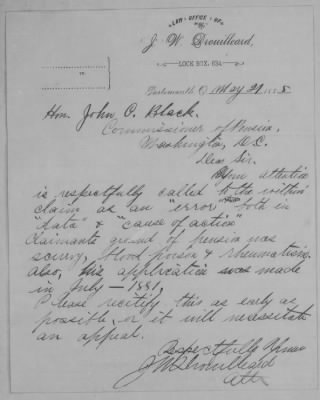 LAW OFFICE OF
J. W. Drouilleard,
LOCK BOX, 634
Portsmouth, O. May 21, 1885
Hon. John C. Black.
Commissioner of Pension,
Washington, D.C.
Dear Sir.
Your attention
is respectfully called to the within
claim as an "error" both in
"data" & "cause of action"
Claimants ground of pension was
scurvy, blood poison & rheumatism,
also, his application was made
in July - 1881,
Please rectify this as early as
possible, or it will necessitate
an appeal.
Respectfully Yours
J W Drouilleard
Atty